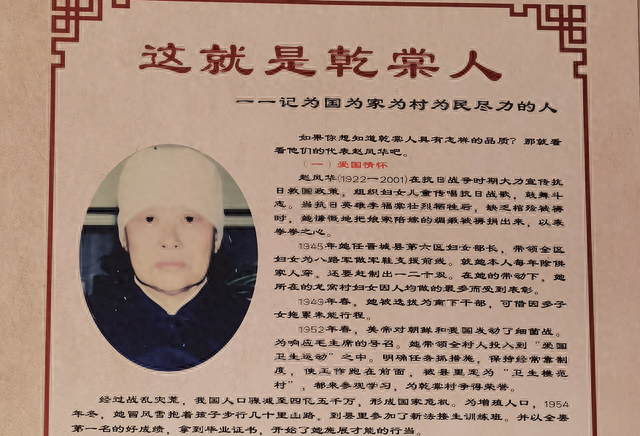 这就是乾棠人
——记为国为家为村为民尽力的人
如果你想知道乾棠人具有怎样的品质？那就看
看他们的代表赵凤华吧。
（一）爱国情怀
赵凤华(1922—2001)在抗日战争时期大力宣传抗
日救国政策，组织妇女儿童传唱抗日战歌，鼓舞斗
志。当抗日英雄李福棠壮烈牺牲后，缺乏棺殓被褥
时，她慷慨地把娘家陪嫁的绸缎被褥捐出来，以表
拳拳之心。
1945年她任晋城县第六区妇女部长，带领全区
妇女为八路军做军鞋支援前线。就她本人每年除供
家人穿，还要赶制出一二十双。在她的带动下，她
所在的龙窝村妇女因人均做的最多而受到表彰。
1949年春，她被选拔为南下干部，可惜因多子
女拖累未能行程。
1952年春，美帝对朝鲜和我国发动了细菌战。
为响应毛主席的号召。她带领全村人投入到“爱国
卫生运动”之中。明确任务抓措施，保持经常靠制
度，使工作跑在前面，被县里定为“卫生模范
村”，都来参观学习，为乾棠村争得荣誉。
经过战乱灾荒，我国人口骤减至四亿五千万，形成国家危机。为增殖人口，1954
年冬，她冒风雪抱着孩子步行几十里山路，到县里参加了新法接生训练班。并以全县
第一名的好成绩，拿到毕业证书，开始了她施展才能的行当。